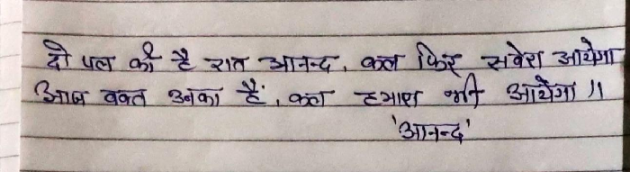 दो पल की है रात आनन्द, कल फिर सवेरा आयेगा
आज वक्त उनका है, कल हमारा भी आयेगा ॥
'आनन्द'